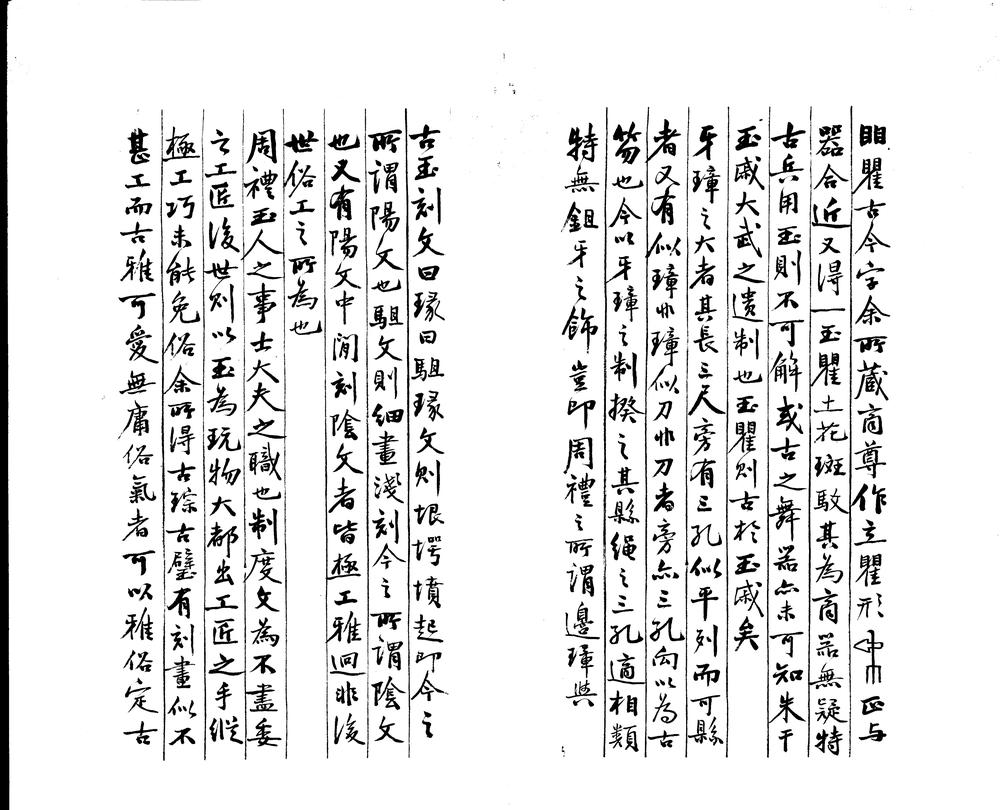 瞿古今字余所藏商尊作立瞿形正与
器合近又得一玉瞿土花斑駁其為商器無疑特
古兵用玉則不可解或古之舞器亦未可知朱干
玉戚大武之遺制也玉瞿則古於玉戚矣
牙璋之大者其長三尺旁有三孔似平列而可縣
者又有似璋非璋似刀非刀者旁亦三孔向以為古
笏也今以牙璋之制揆之其縣繩之三孔適相類
特無鉏牙之飾豈即周禮之所謂邊璋與
古玉刻文曰瑑曰駔瑑文則垠堮墳起即今之
所謂陽文也駔文則細畫淺刻今之所謂陰文
也又有陽文中間刻陰文者皆極工雅迥非後
世俗工之所為也
周禮玉人之事士大夫之職也制度文為不盡委
之工匠後世則以玉為玩物大都出工匠之手縱
極工巧未能免俗余所得古琮古璧有刻畫似不
甚工而古雅可愛無庸俗氣者可以雅俗定古